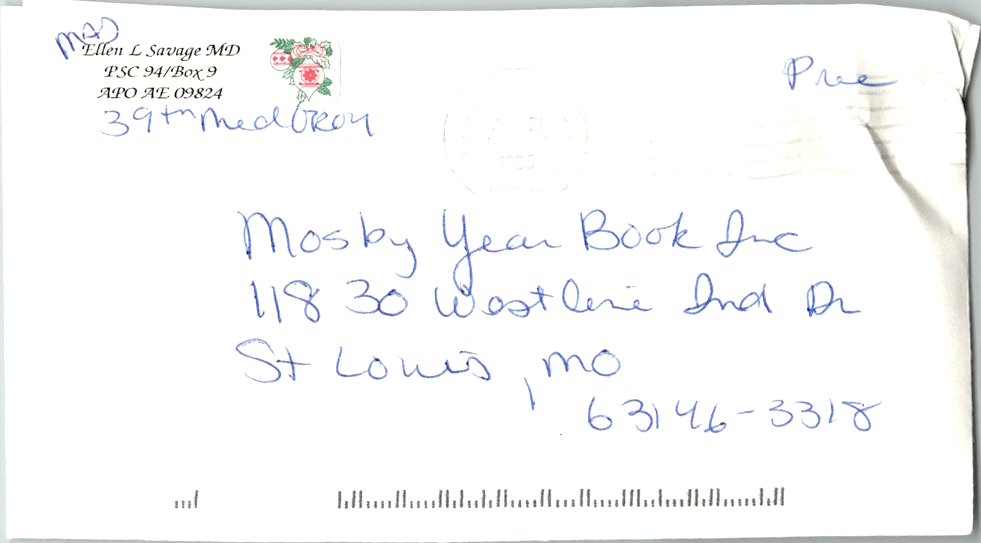 MAJ
Ellen L Savage MD
PSC 94/Box 9
APO AE 09824
39th Med Group
Free
Mosby Year Book Inc
11830 Westline Ind Dr
St Louis, MO
63146-3318